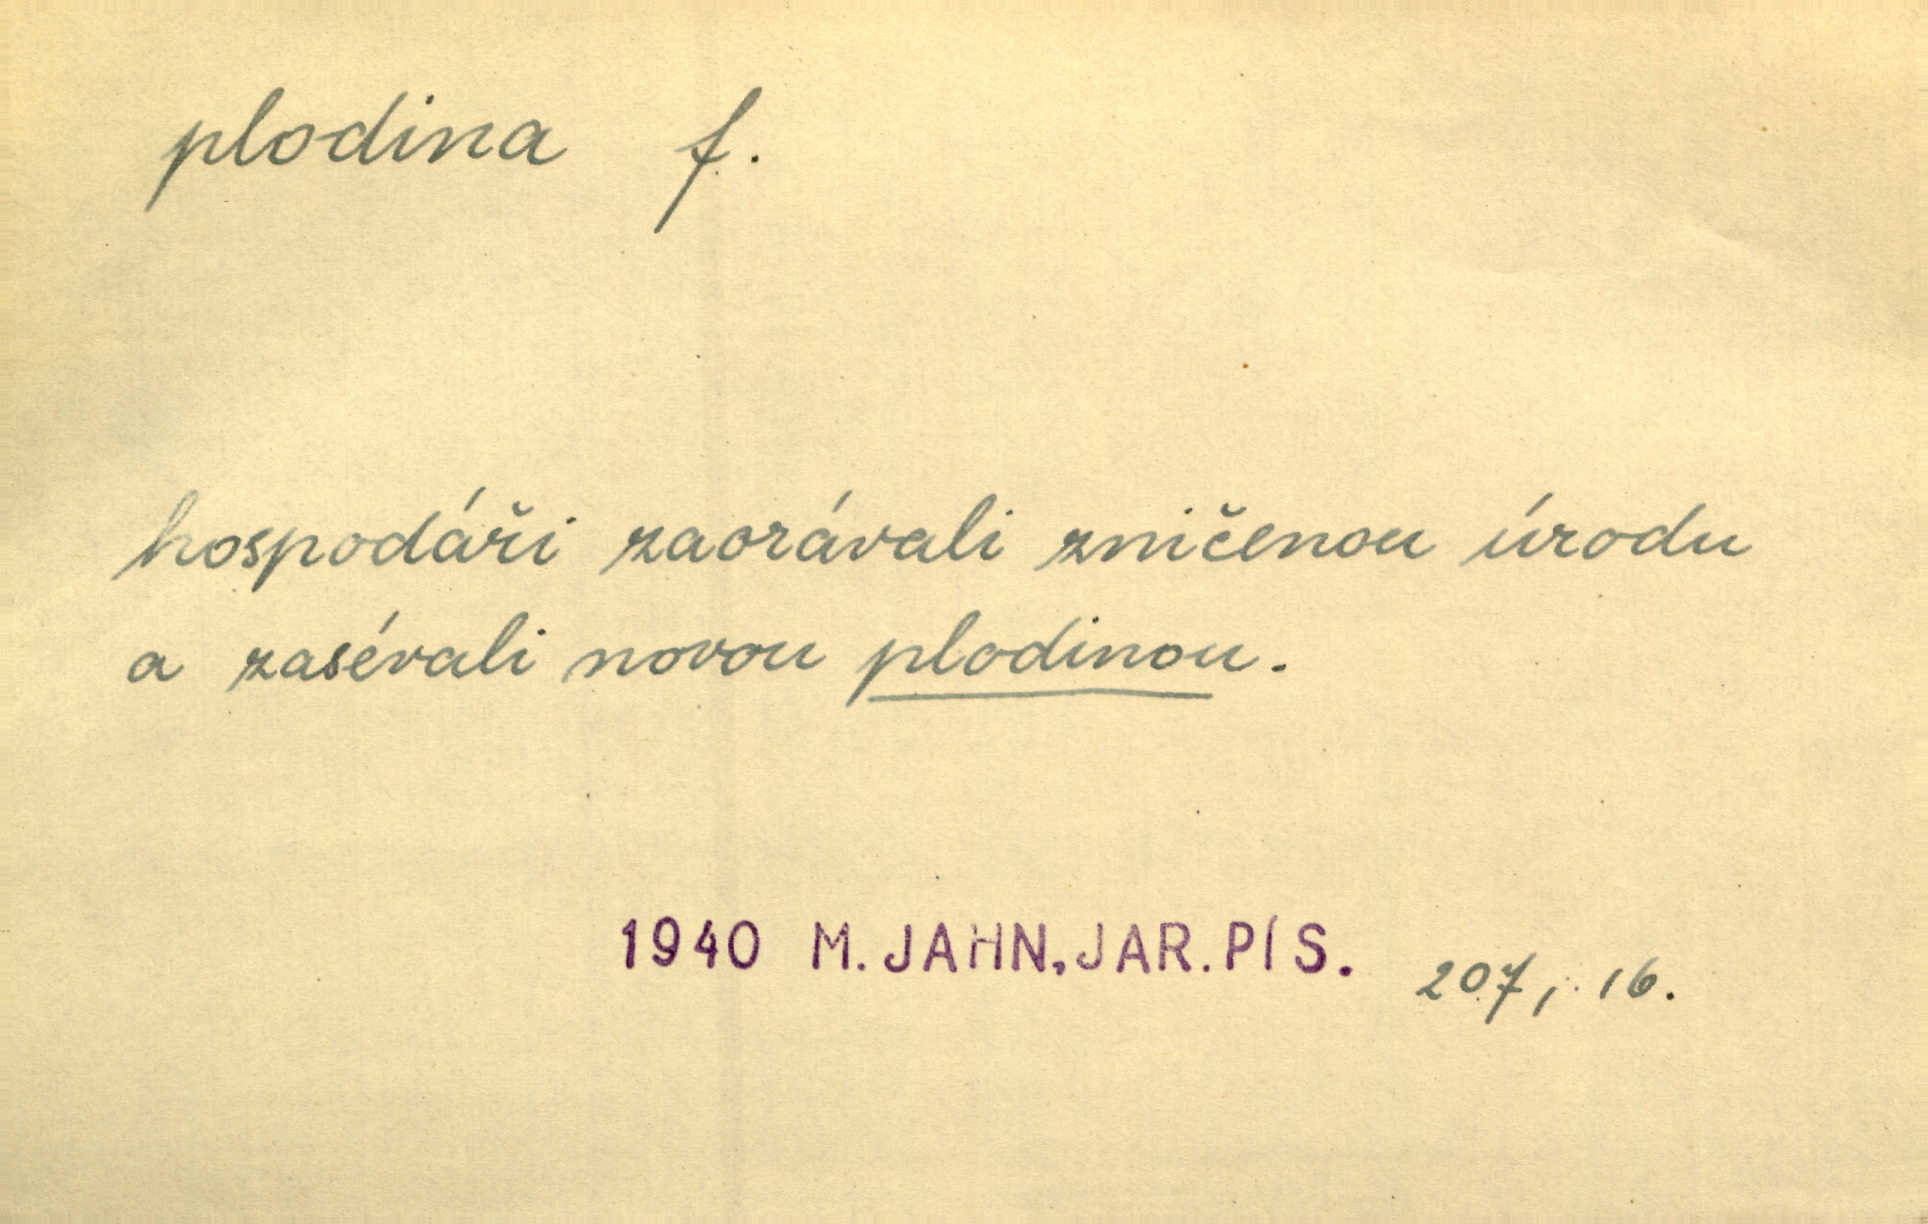 plodina f.
hospodáři zaorávali zničenou úrodu
a zasévali novou plodinou.
1940 M. JAHN, JAR. PÍS. 207, 16.